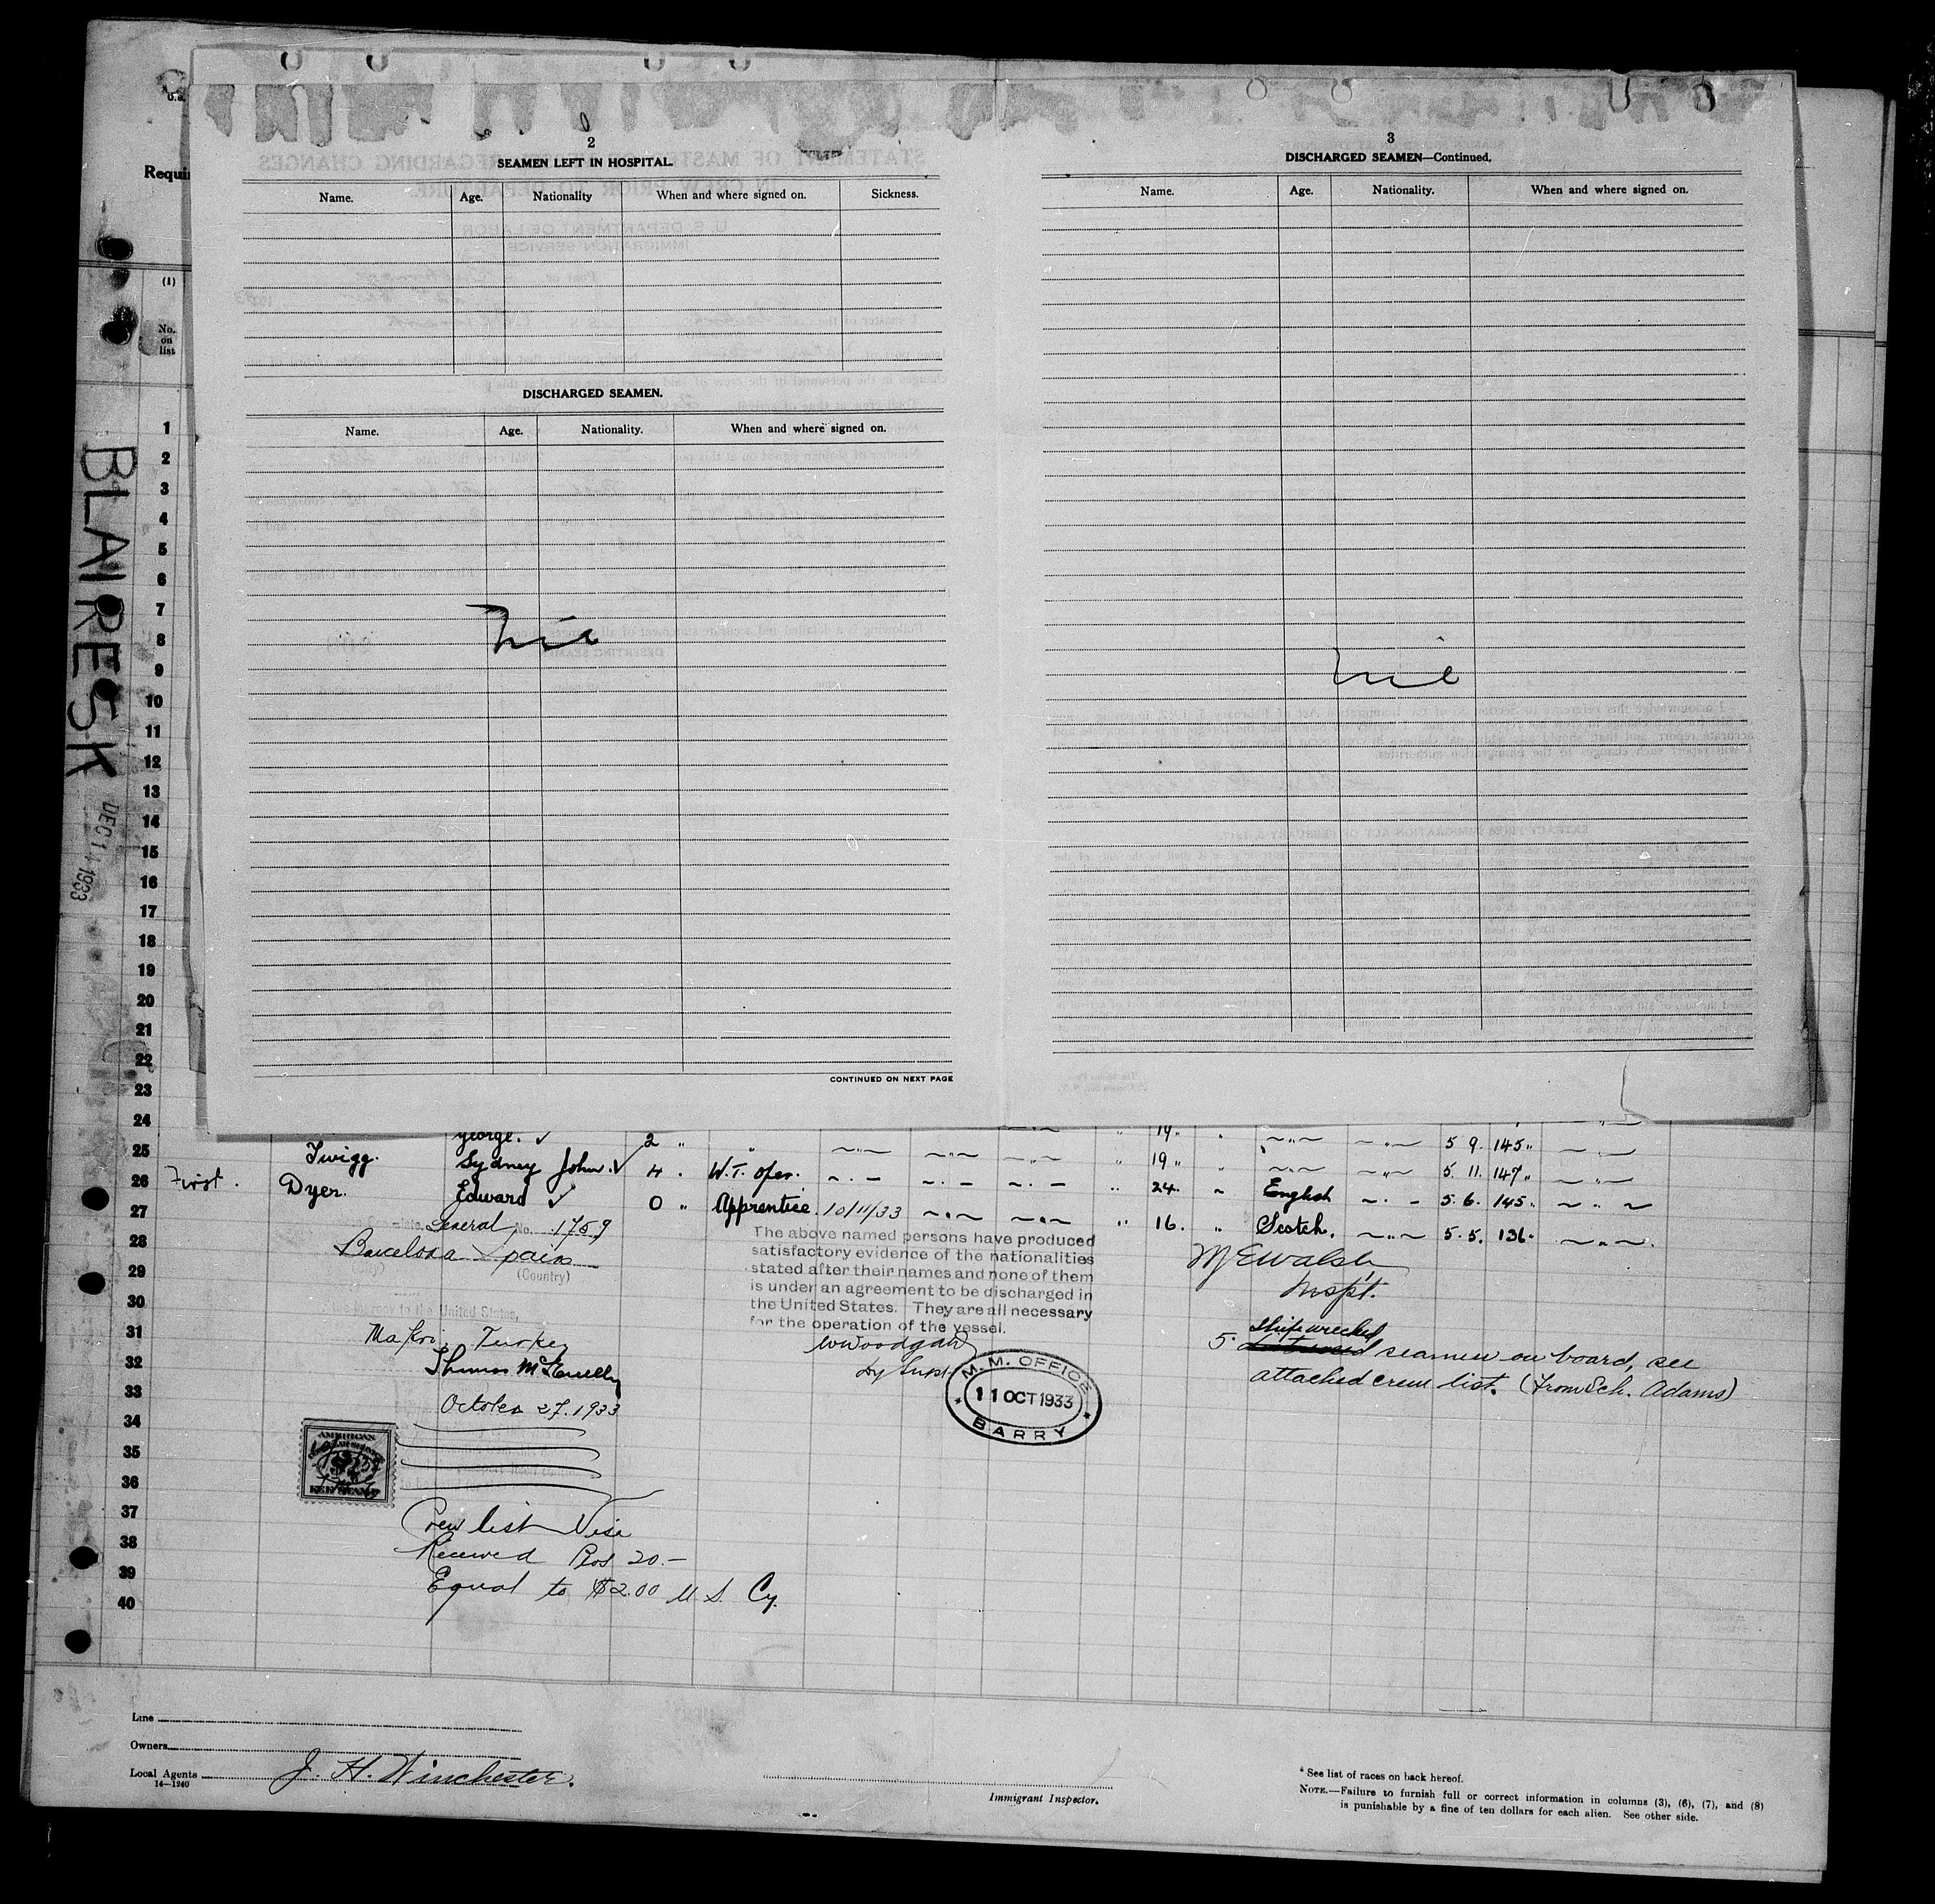 2
SEAMEN LEFT IN HOSPITAL.
Name. Age. Nationality When and where signed on. Sickness.
DISCHARGED SEAMEN.
Name. Age. Nationality. When and where signed on.
nil
CONTINUED ON NEXT PAGE
3
DISCHARGED SEAMEN—Continued.
Name. Age. Nationality. When and where signed on.
nil
Requi
(1)
No.
on
list
BLAIRESK
DEC 14 1933
1
2
3
4
5
6
7
8
9
10
11
12
13
14
15
16
17
18
19
20
21
22
23
24
George. ✓ 2 " " 19 " " 5 9. 145 "
25 Twigg. Sydney John. ✓ 4 . W.T. oper. " 19 " 5. 11. 147 "
26 First. Dyer. Edward ✓ 0 " Apprentice. 10/11/33 " 24. " English 5. 6. 145.
27 " 16. " Scotch. 5. 5. 136.
General No. 1759
28 Barcelona Spain
(Country)
29
30
journey to the United States,
31 Makri, Turkey
32 Thomas McEnelly
33 October 27. 1933
34
35
36
37
38
39
40
AMERICAN
FEE STAMP
Crew list Visa
Received Pos 20.—
Equal to $2.00 U.S. Cy.
The above named persons have produced
satisfactory evidence of the nationalities
stated after their names and none of them
is under an agreement to be discharged in
the United States. They are all necessary
for the operation of the vessel.
M.M. OFFICE
11 OCT 1933
BARRY
M E Walsh
Inspt.
shipwrecked
5 seamen on board, see
attached crew list. (from Sch. Adams)
Line
Owners
Local Agents J. H. Winchester.
14—1240
Immigrant Inspector.
* See list of races on back hereof.
NOTE.—Failure to furnish full or correct information in columns (3), (6), (7), and (8)
is punishable by a fine of ten dollars for each alien. See other side.